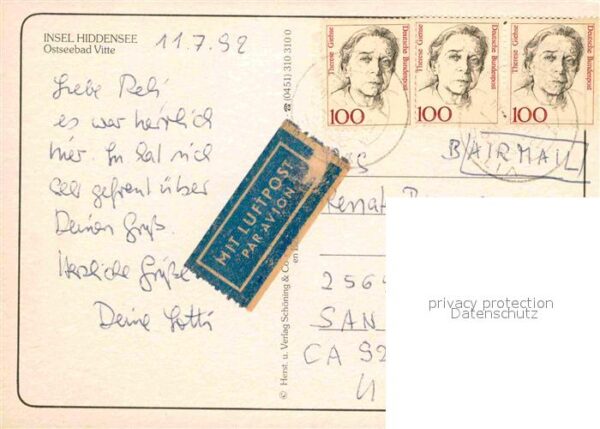 INSEL HIDDENSEE
Ostseebad Vitte
11.7.92
Liebe Reli
es war herrlich
hier. In hat mich
sehr gefreut über
Deinen Gruß.
Herzliche Grüße
Deine Lotti
☎ (0451) 310 310 0
© Herst. u. Verlag Schöning & Co
MIT LUFTPOST
PAR AVION
Therese Giehse
Deutsche Bundespost
100
Therese Giehse
Deutsche Bundespost
100
Therese Giehse
Deutsche Bundespost
100
AIRMAIL
Renat
256
SAN
CA 92
U
privacy protection
Datenschutz